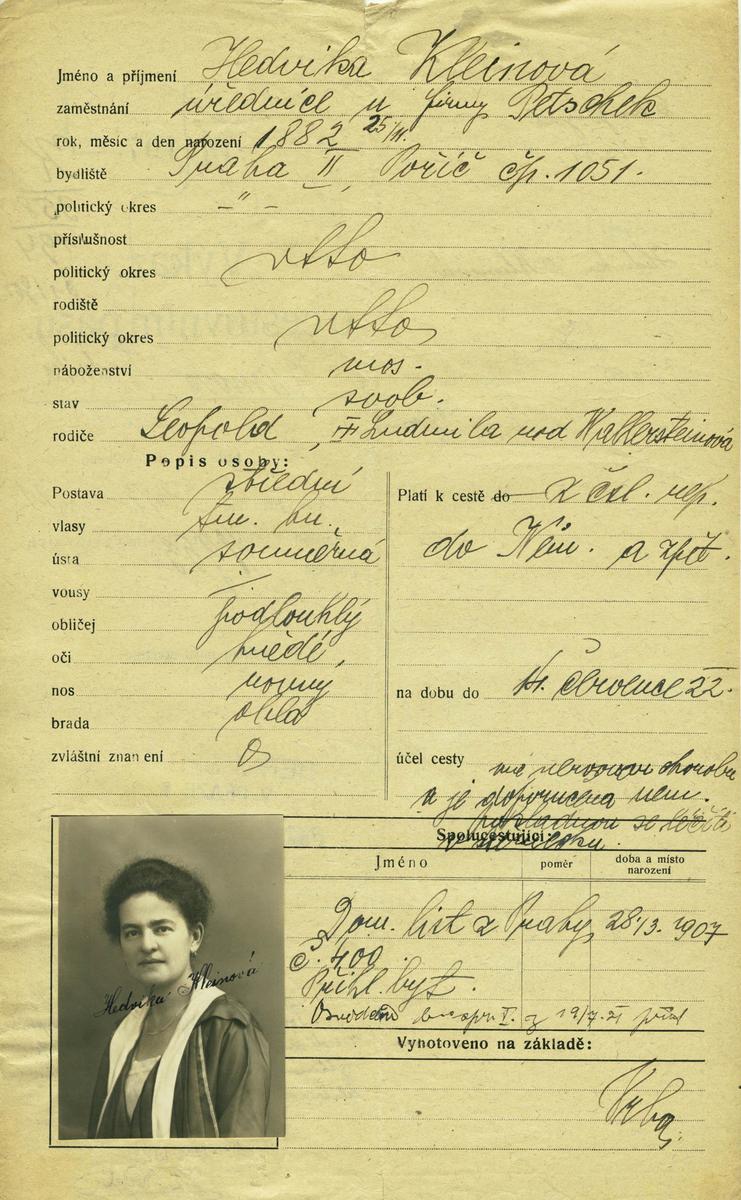 Jméno a příjmení Hedvika Kleinová
zaměstnání úřednice u firmy Petschek
rok, měsíc a den narození 1882 25/11.
bydliště Praha II, Poříč čp. 1051.
politický okres -"-
příslušnost
politický okres
rodiště
politický okres
náboženství mos.
stav svob.
rodiče Leopold, Ludmila rod Wallersteinová
Popis osoby:
Postava střední
vlasy tm. hn.
ústa souměrná
vousy —
obličej podlouhlý
oči hnědé
nos rovný
brada oblá
zvláštní znamení
Platí k cestě do z čsl. rep.
do Něm. a zpět.
na dobu do července 22.
účel cesty má nervovou chorobu
a je doporučena nem.
pokladnou se léčiti
Spolucestující:
Jméno poměr doba a místo narození
Dom. list z Prahy 28/3. 1907
č. 400
Přihl. byt.
19/7. 21
Vyhotoveno na základě:
Hedvika Kleinová